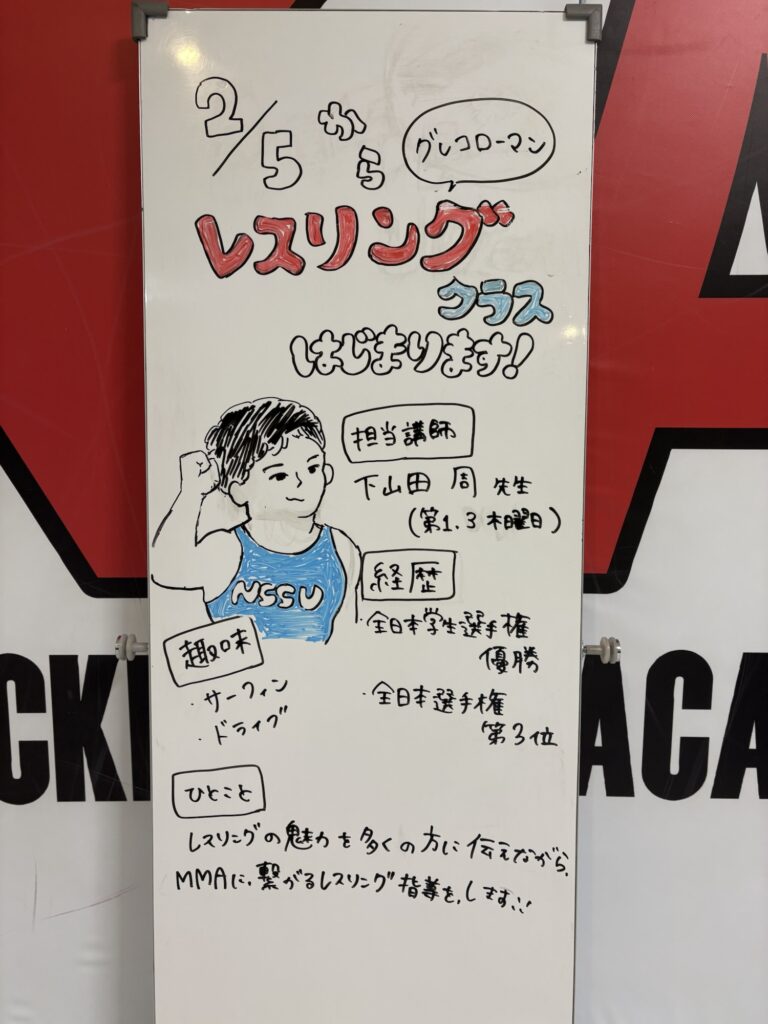 2/5から
グレコローマン
レスリング
クラス
はじまります!
担当講師
下山田 周 先生
(第1.3 木曜日)
NSSU
経歴
・全日本学生選手権
優勝
・全日本選手権
第3位
趣味
・サーフィン
・ドライブ
ひとこと
レスリングの魅力を多くの方に伝えながら、
MMAに、繋がるレスリング指導を、します!!
CK
ACA